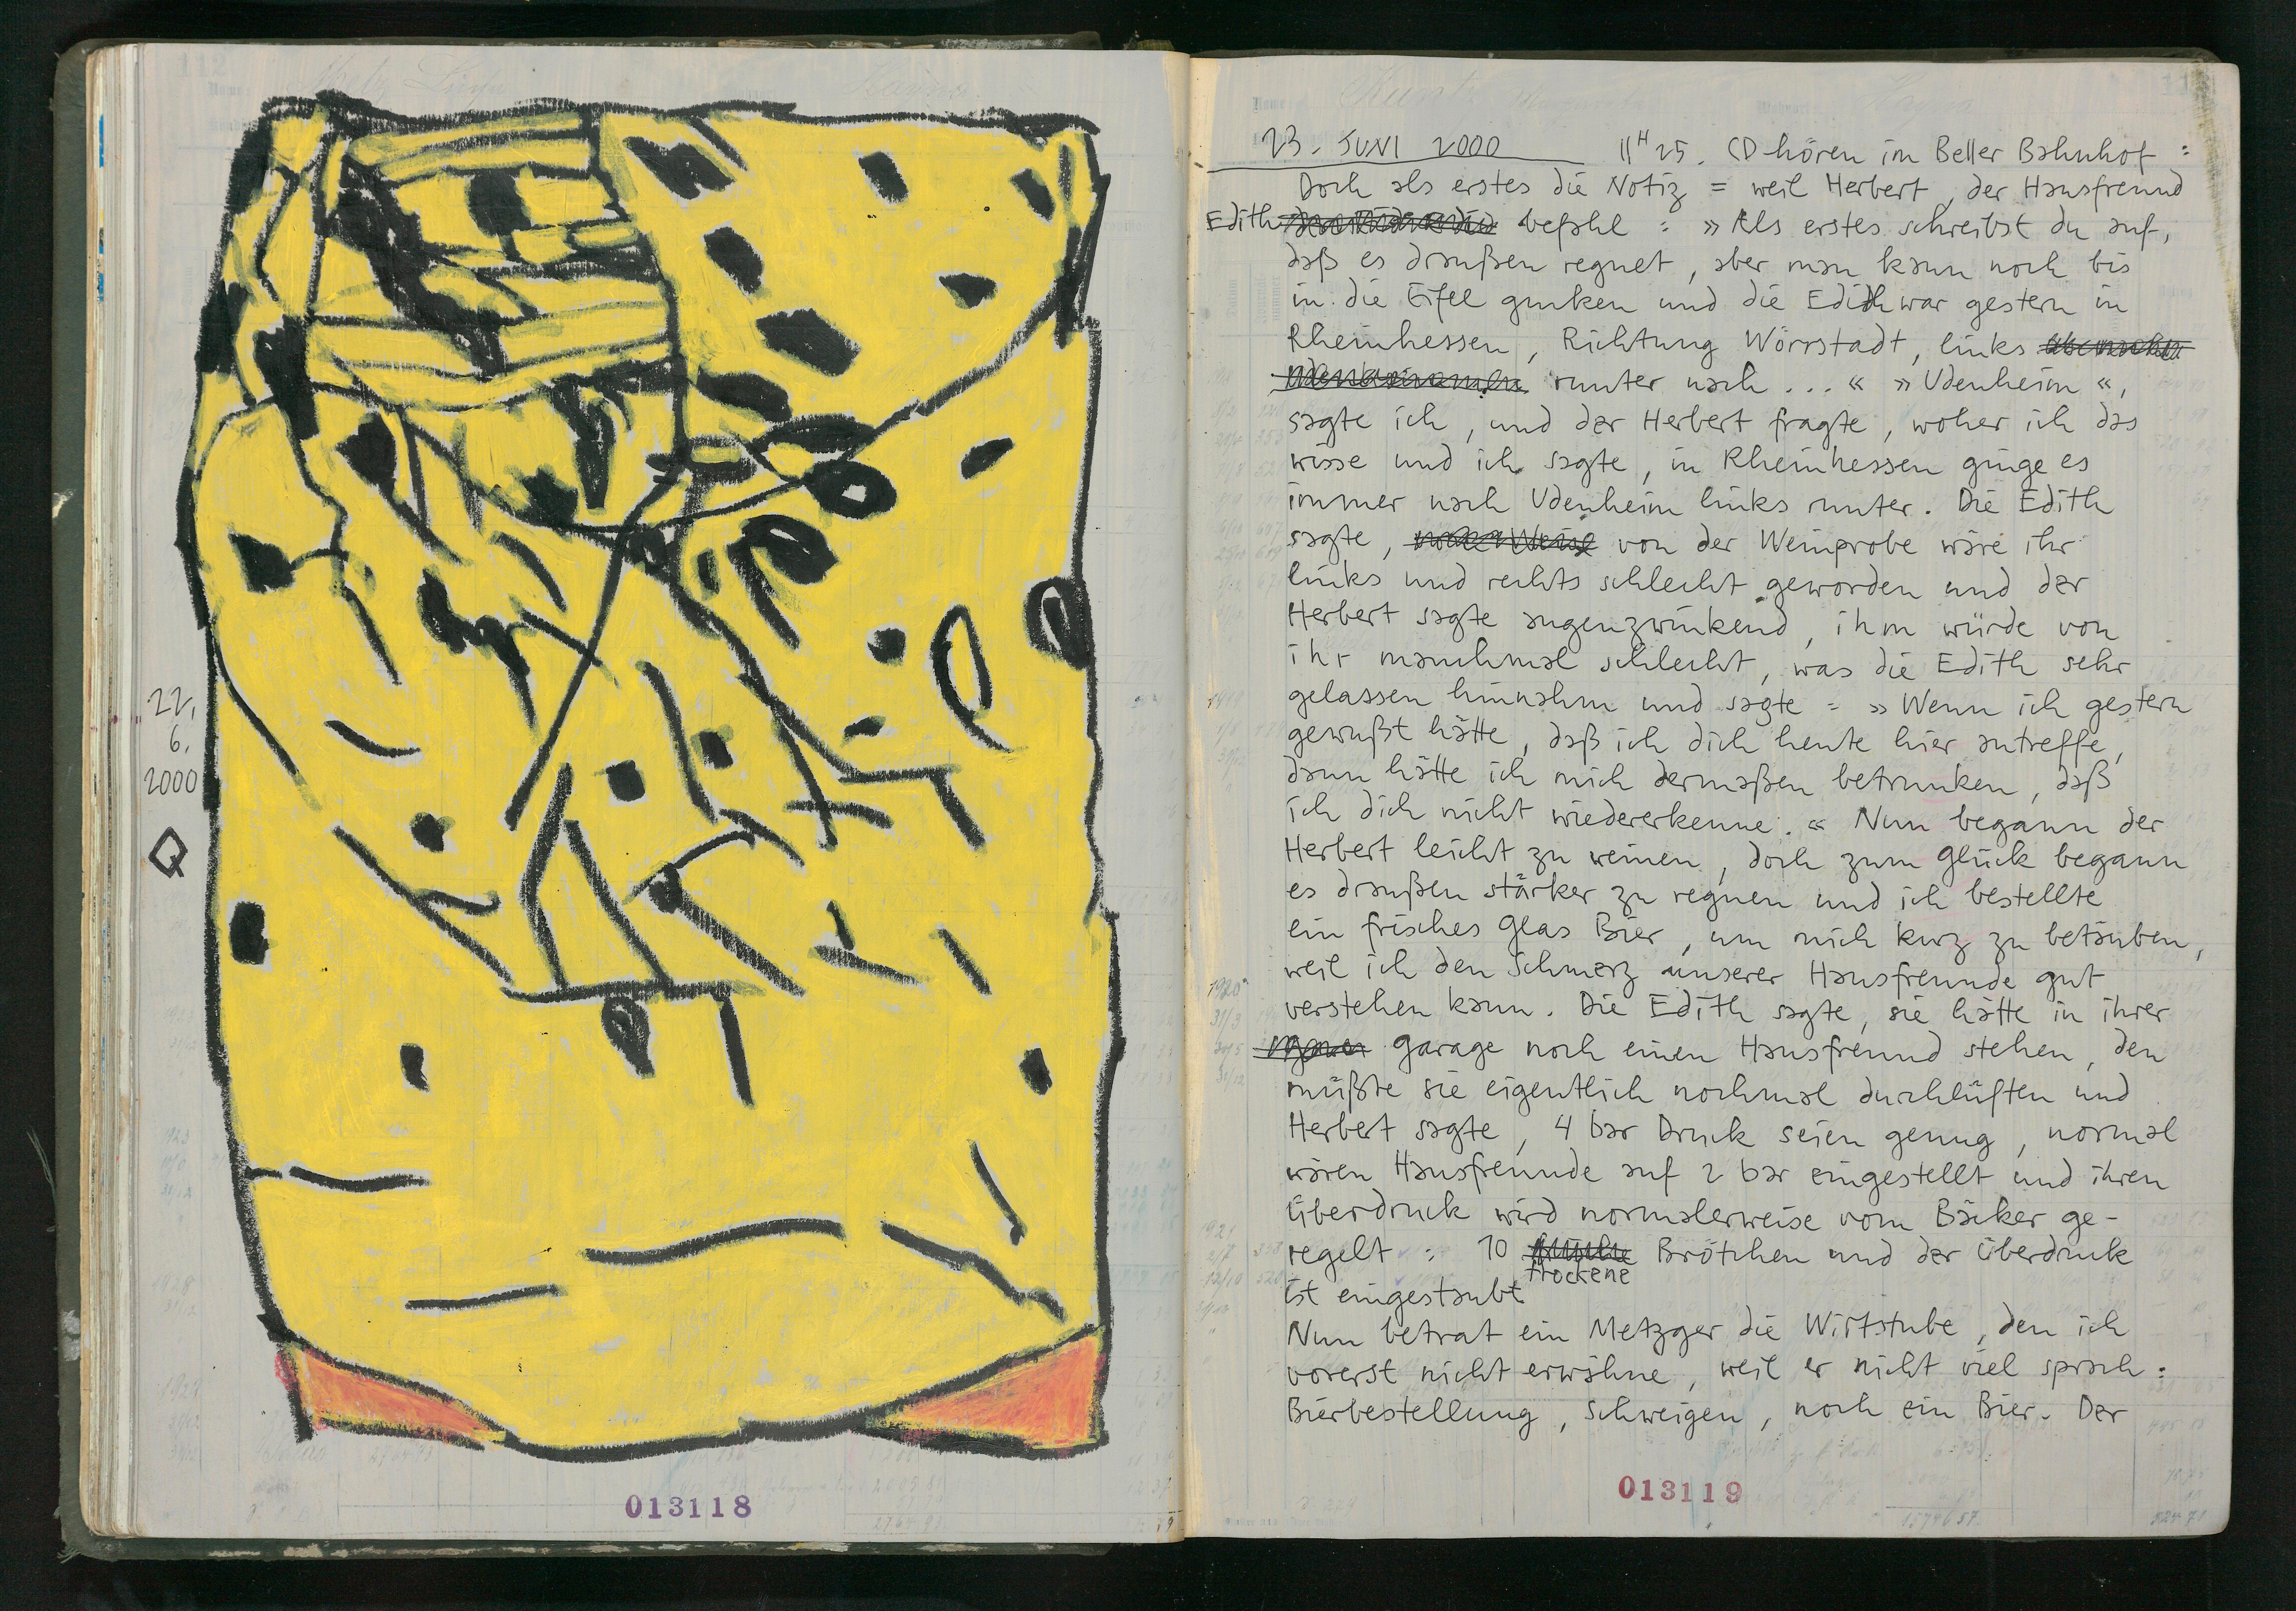 22.
6.
2000
013118
23. JUNI 2000 11H25. CD hören im Beller Bahnhof :
Doch als erstes die Notiz = weil Herbert, der Hausfreund
Edith befahl : » Als erstes schreibst du auf,
daß es draußen regnet, aber man kann noch bis
in die Eifel gurken und die Edith war gestern in
Rheinhessen, Richtung Wörrstadt, links
runter nach ... « » Udenheim «,
sagte ich, und der Herbert fragte, woher ich das
wisse und ich sagte, in Rheinhessen ginge es
immer nach Udenheim links runter. Die Edith
sagte, von der Weinprobe wäre ihr
links und rechts schlecht geworden und der
Herbert sagte augenzwinkend, ihm würde von
ihr manchmal schlecht, was die Edith sehr
gelassen hinnahm und sagte = » Wenn ich gestern
gewußt hätte, daß ich dich heute hier antreffe,
dann hätte ich mich dermaßen betrunken, daß
ich dich nicht wiedererkenne. « Nun begann der
Herbert leicht zu weinen, doch zum Glück begann
es draußen stärker zu regnen und ich bestellte
ein frisches Glas Bier, um mich kurz zu betäuben,
weil ich den Schmerz unserer Hausfreunde gut
verstehen kann. Die Edith sagte, sie hätte in ihrer
Garage noch einen Hausfreund stehen, den
müßte sie eigentlich nochmal durchlüften und
Herbert sagte, 4 bar Druck seien genug, normal
wären Hausfreunde auf 2 bar eingestellt und ihren
Überdruck wird normalerweise vom Bäcker ge-
regelt : 10 trockene Brötchen und der Überdruck
ist eingestaubt
Nun betrat ein Metzger die Wirtstube, den ich
vorerst nicht erwähne, weil er nicht viel sprach :
Bierbestellung, Schweigen, noch ein Bier. Der
013119